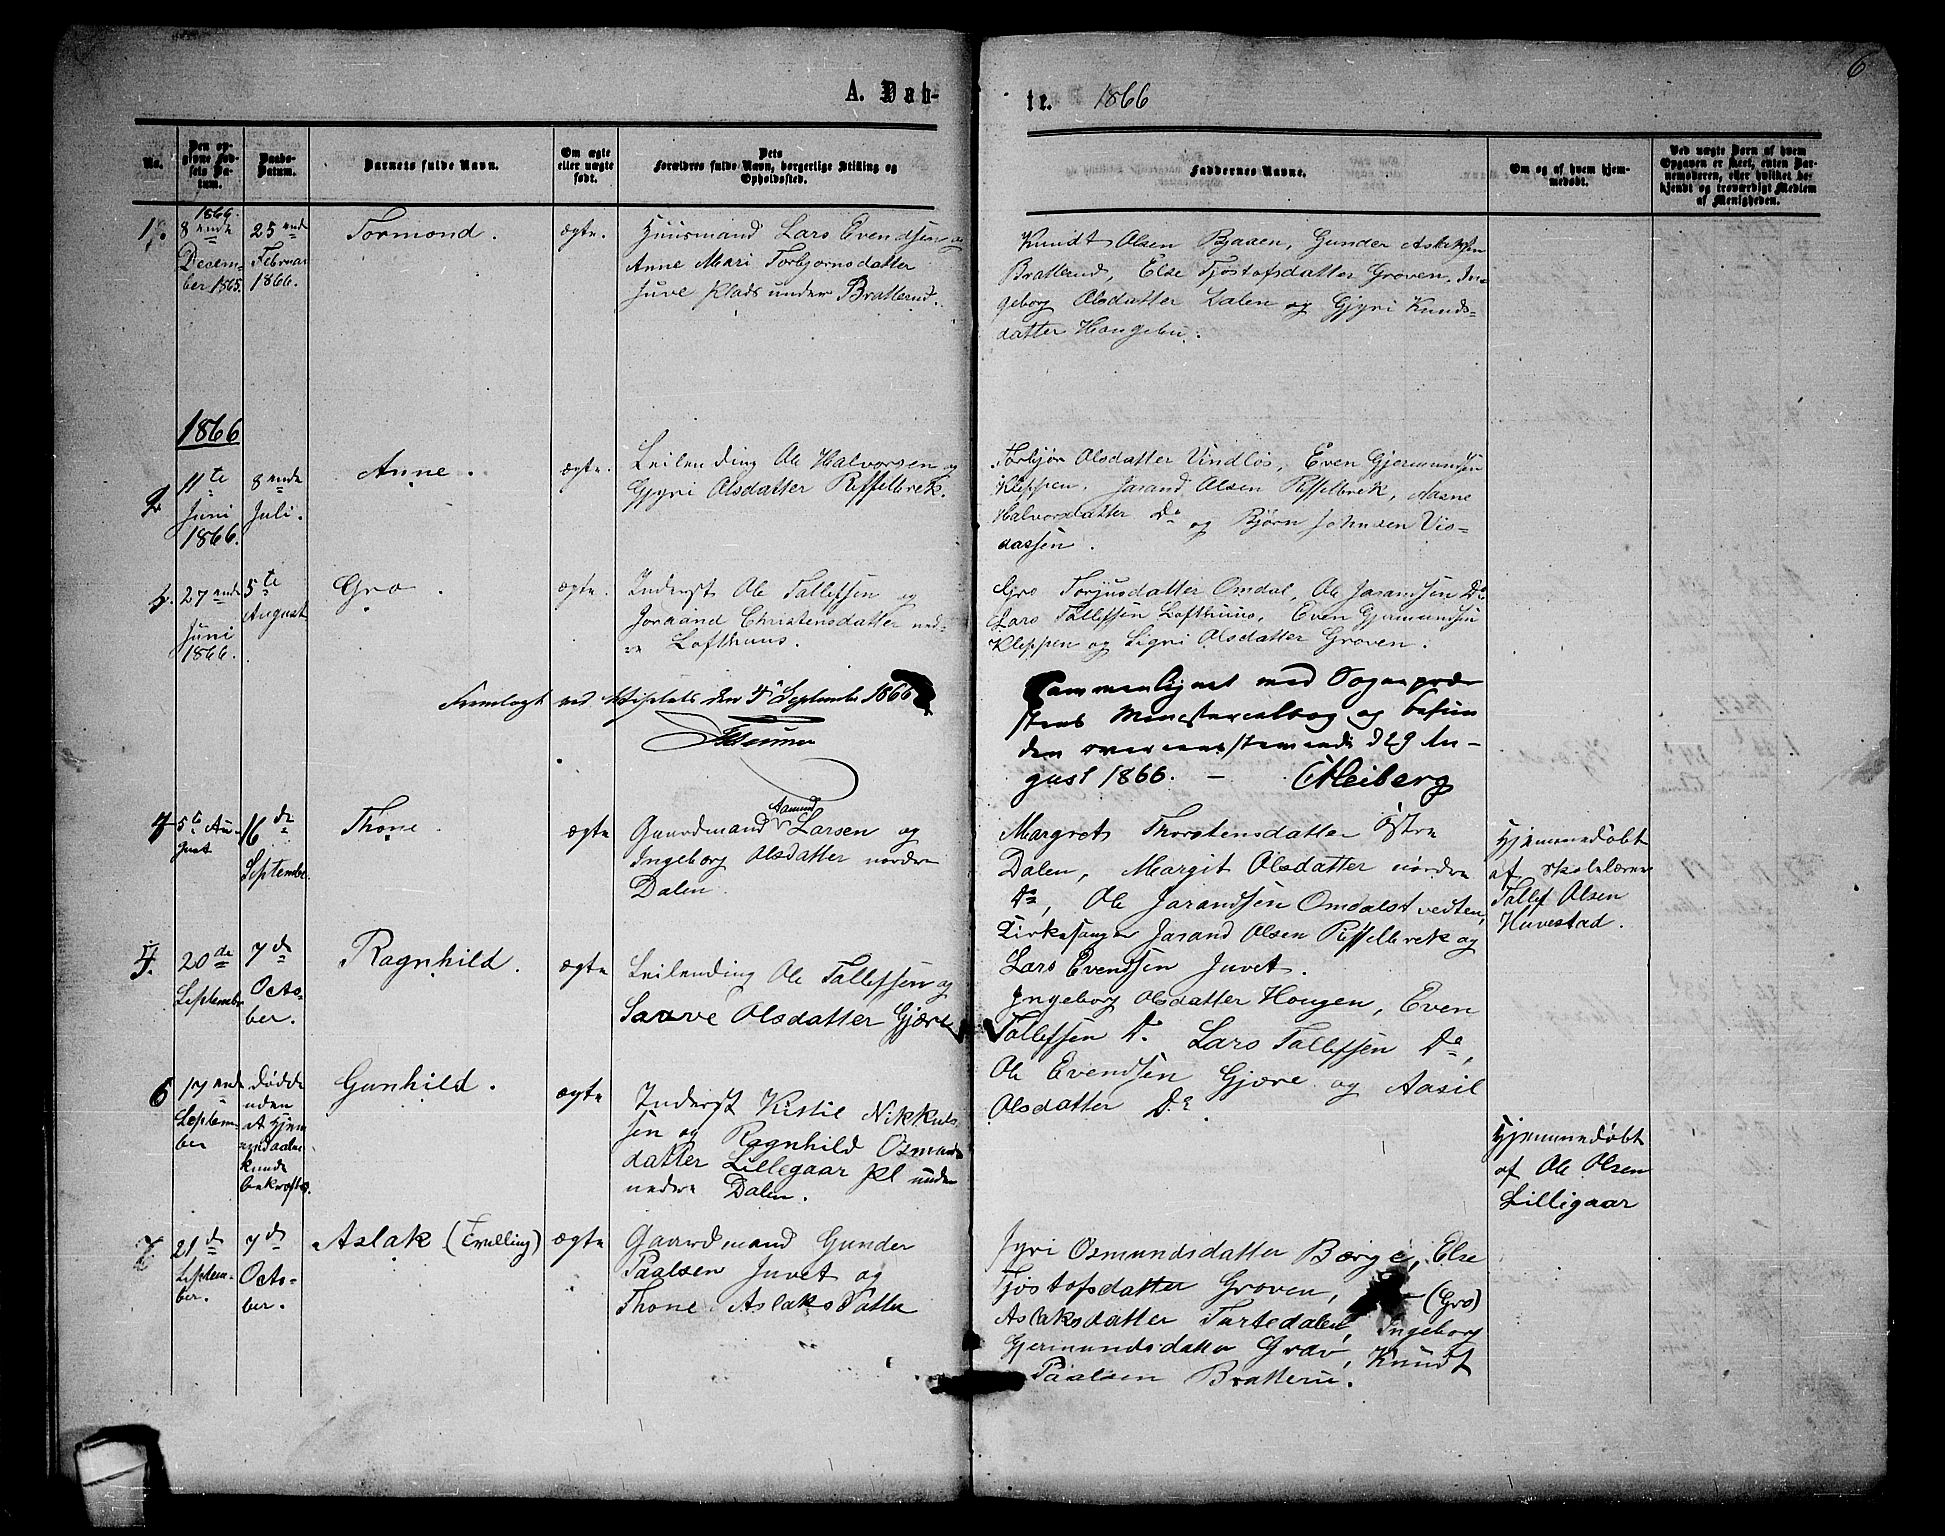 6
A. Døb-
te. 1866
No.
Den op-
givne Fød-
sels Da-
tum.
Daabs-
Datum.
Barnets fulde Navn.
Om ægte
eller uægte
født.
Dets
Forældres fulde Navn, borgerlige Stilling og
Opholdssted.
Faddernes Navne.
Om og af hvem hjem-
medøbt.
Ved uægte Børn af hvem
Opgaven er skeet, enten Bar-
nemoderen, eller hvilket be-
kjendt og troværdigt Medlem
af Menigheden.
1.
8ende
Decem-
ber 1865.
25nde
Februar
1866.
Tormond.
ægte.
Huusmand Lars Evendsen og
Anne Mari Torbjornsdatter
Juve Plads under Bratterud.
Knudt Olsen Bjaaen, Gunder Aslaksen
Bratterud, Else Tjøstofsdatter Groven, In-
geborg Olsdatter Dalen og Gjyri Knuds-
datter Haugebu.
1866
2
11te
Juni
1866.
8ende
Juli.
Anne.
ægte.
Leilending Ole Halvorsen og
Gjyri Olsdatter Riffelbrek.
Torbjør Olsdatter Vindløs, Even Gjermundsen
Kleppen. Jarand Olsen Riffelbrek, Aasne
Halvorsdatter Do og Bjørn Johnsen Vis-
dassen.
27ende
Juni
1866.
5te
August
Gro.
ægte.
Inderst Ole Tallefsen og
Joraand Christensdatter ned-
re Lofthuus.
Gro Torjusdatter Omdal, Ole Jarandsen Do
Lars Tallefsen Lofthuus, Even Gjermundsen
Kleppen og Sigri Olsdatter Groven.
Fremlagt ved Visitats den 4de September 1866
Sammenlignet med Sognepræ-
stens Ministerialbog og befun
den overeensstemmende d 29 Au-
gust 1866. — Heiberg
4
5te Au-
gust
16de
September.
Thone.
ægte
Gaardmand Aamund Larsen og
Ingeborg Olsdatter nordre
Dalen.
Margret Thorstensdatter østre
Dalen, Margit Olsdatter nordre
Do, Ole Jarandsen Omdalstvedten,
Kirkesanger Jarand Olsen Riffelbrek og
Lars Evendsen Juvet.
Hjemmedøbt
af Skolelærer
Tallef Olsen
Havestad.
5.
20de
September
7de
Octo-
ber.
Ragnhild.
ægte
Leilending Ole Tallefsen og
Saave Olsdatter Gjære
Ingeborg Olsdatter Haugen, Even
Tallefsen Do. Lars Tallefsen Do,
Ole Evendsen Gjære og Aasil
Olsdatter Do.
6
17ende
Septem-
ber
døde
uden
at Hjem
medaaben
kunde
bekræftes.
Gunhild.
ægte
Inderst Kistil Nikkuls
sen og Ragnhild Osmunds
datter Lillegaar Pl under
nedre Dalen.
Hjemmedøbt
af Ole Olsen
Lilligaar
7
21de
Septem-
ber.
7de
Octo-
ber.
Aslak (Tvilling)
ægte
Gaardmand Gunder
Paalsen Juvet og
Thone Aslaksdatter
Jyri Osmundsdatter Børge, Else
Tjøstofsdatter Groven, (Gro)
Aslaksdatter Tartedalen, Ingeborg
Gjermundsdatter Grav, Knudt
Paalsen Bratteru.